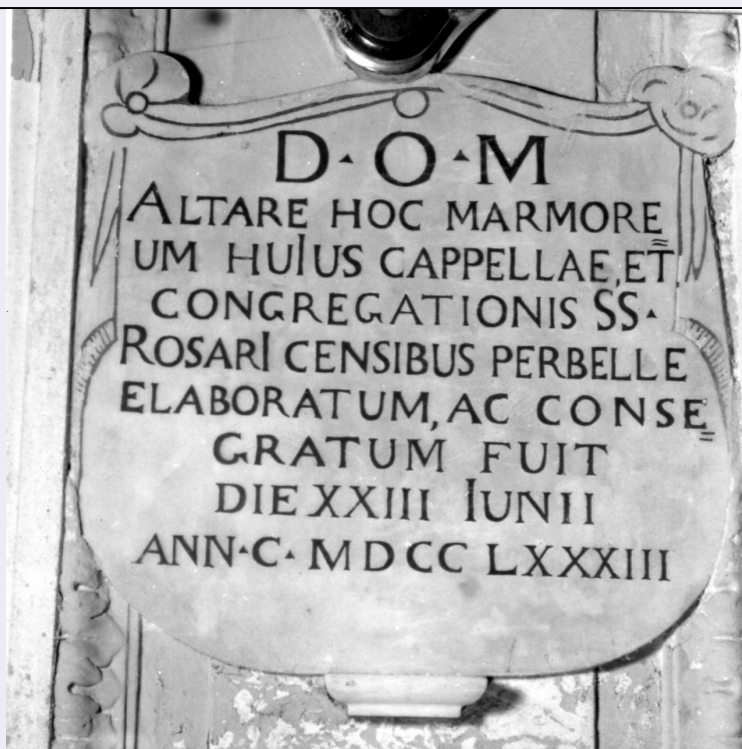 D·O·M
ALTARE HOC MARMORE=
UM HUIUS CAPPELLAE, ET
CONGREGATIONIS SS·
ROSARI CENSIBUS PERBELLE
ELABORATUM, AC CONSE=
GRATUM FUIT
DIE XXIII IUNII
ANN·C· MDCCLXXXIII